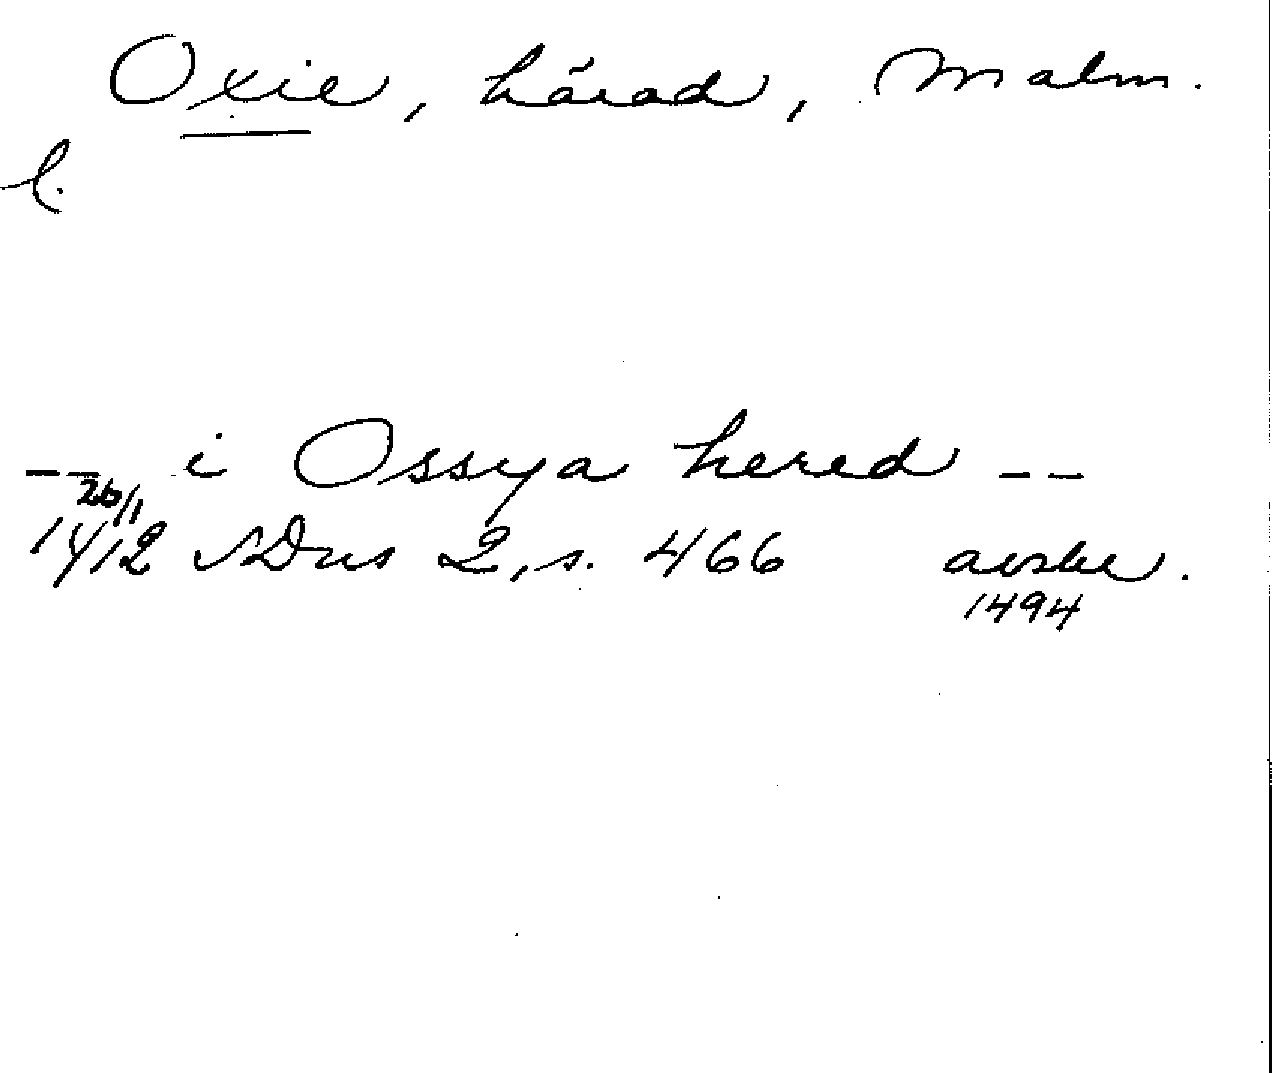 Oxie, härad, Malm.
l.
-- i Ossya hered --
26/1
1412 SDns 2, s. 466 avskr.
1494